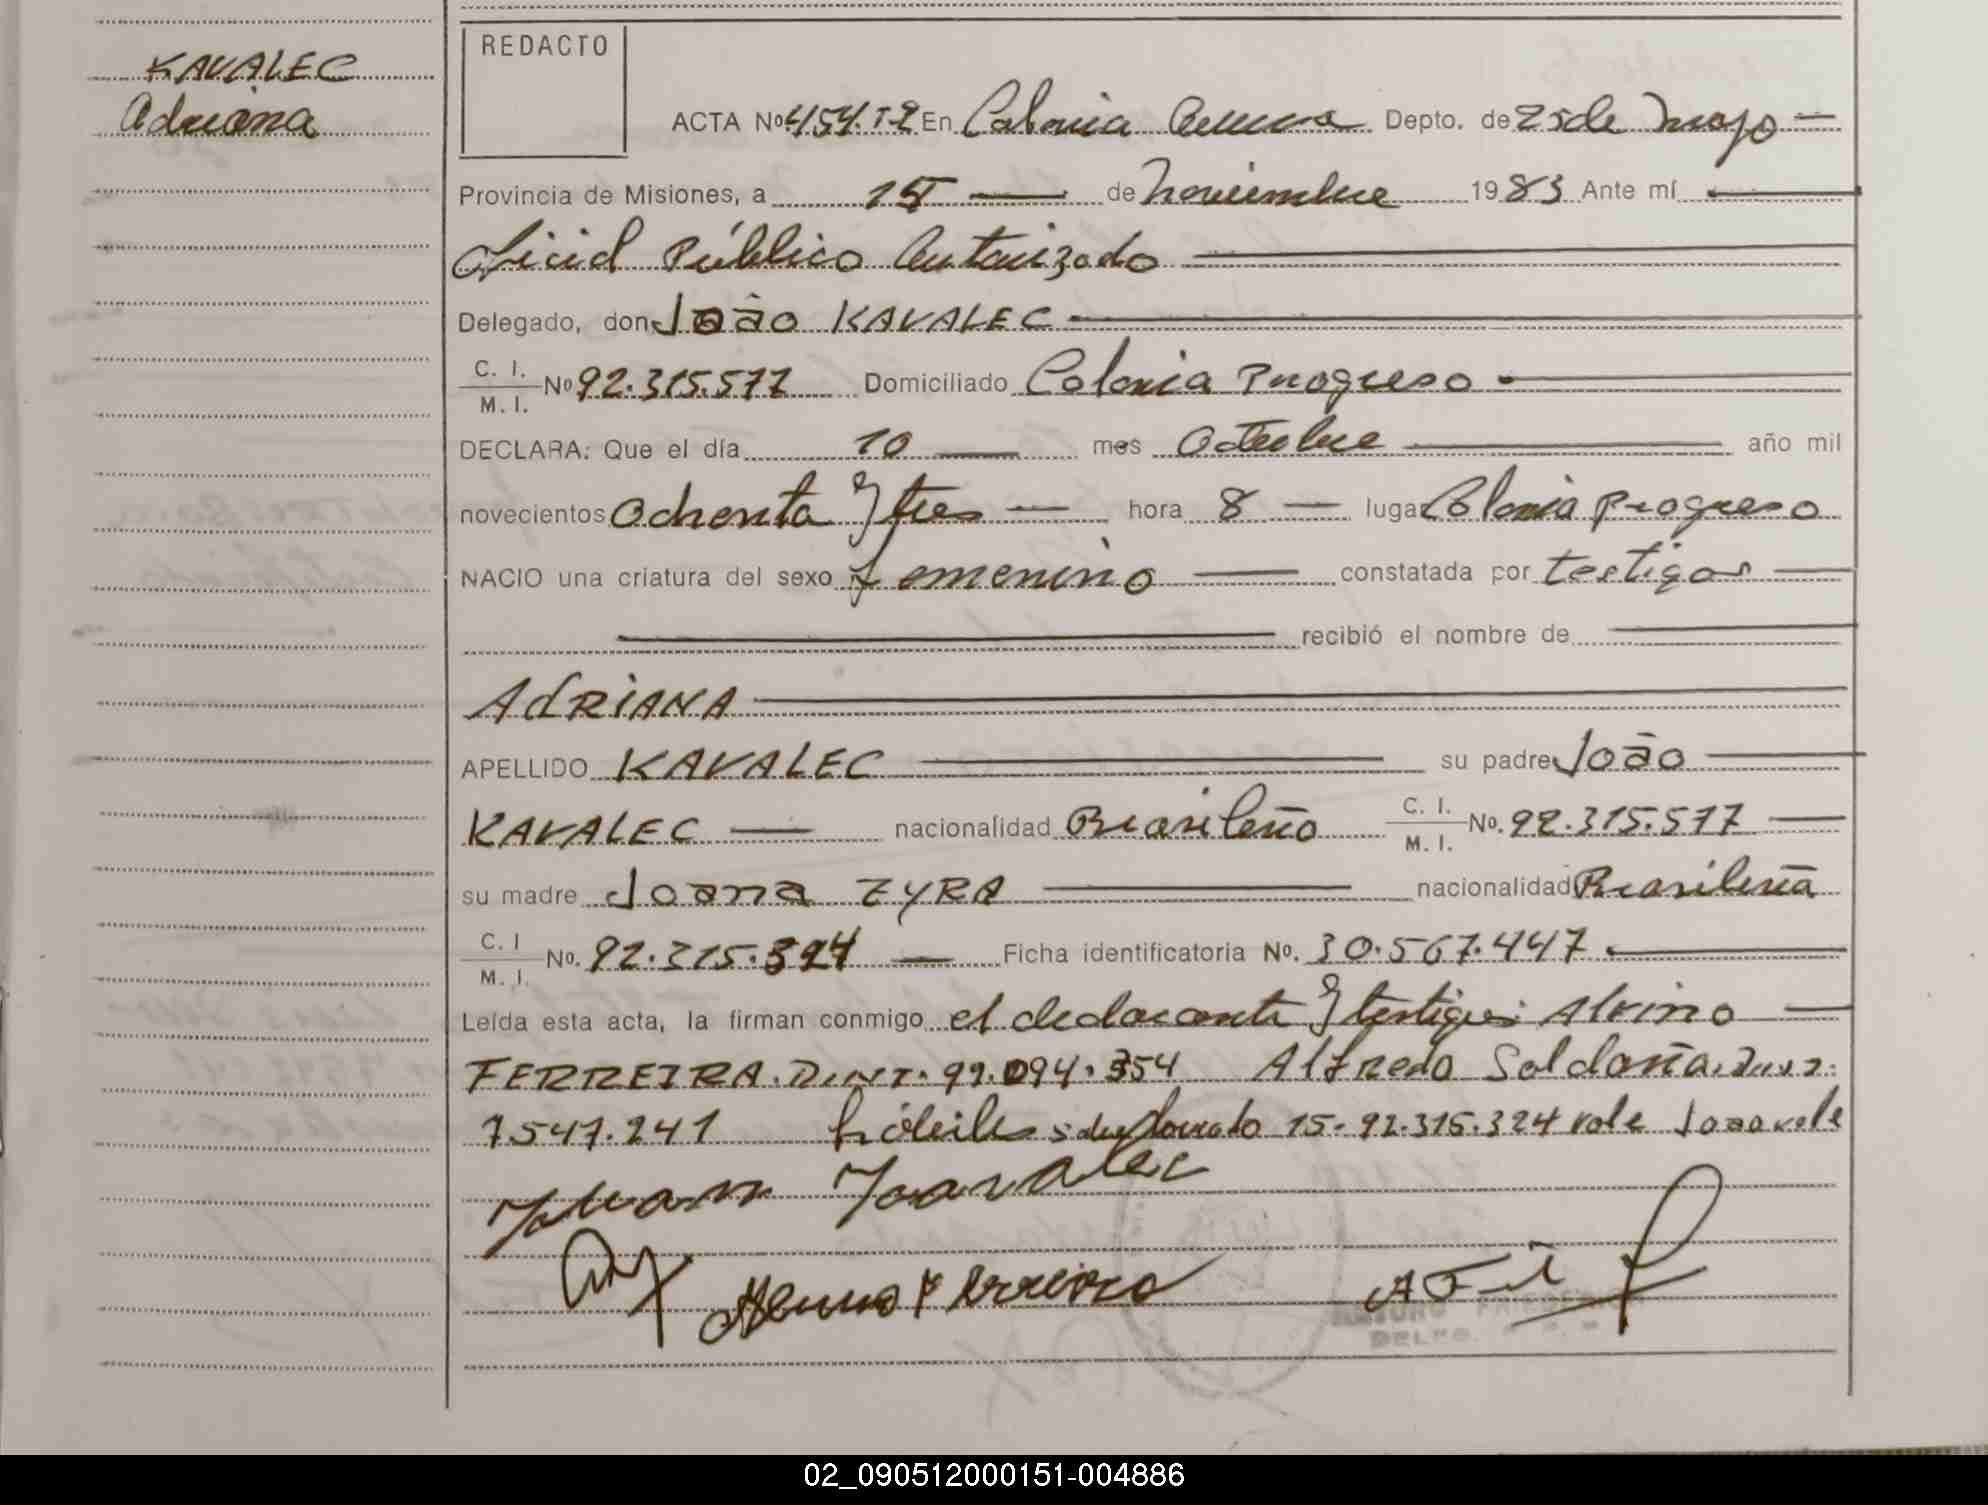 KAVALEC
Adriana
REDACTO
ACTA Nº 454. T-2 En Colonia Aurora Depto. de 25 de Mayo
Provincia de Misiones, a 15 de Noviembre 1983 Ante mí
Oficial Público Autorizado
Delegado, don João KAVALEC
C. I.
M. I. Nº 92.315.577 Domiciliado Colonia Progreso
DECLARA: Que el día 10 mes Octubre año mil
novecientos Ochenta y tres hora 8 lugar Colonia Progreso
NACIO una criatura del sexo femenino constatada por testigos
recibió el nombre de
AdRiANA
APELLIDO KAVALEC su padre João
KAVALEC nacionalidad Brasileño C. I.
M. I. No. 92.315.577
su madre Joana ZYRA nacionalidad Brasileña
C. I
M. I. No. 92.315.324 Ficha identificatoria No. 30.567.447
Leída esta acta, la firman conmigo el declarante y testigos: Alvino
FERREIRA. D.N.I. 99.094.354 Alfredo Soldaña.
7.547.241 hábiles 15- 92.315.324 vale Joao vale
Juan Kavalec
Ferreira
ARTURO FRIEDERICH
02_090512000151-004886